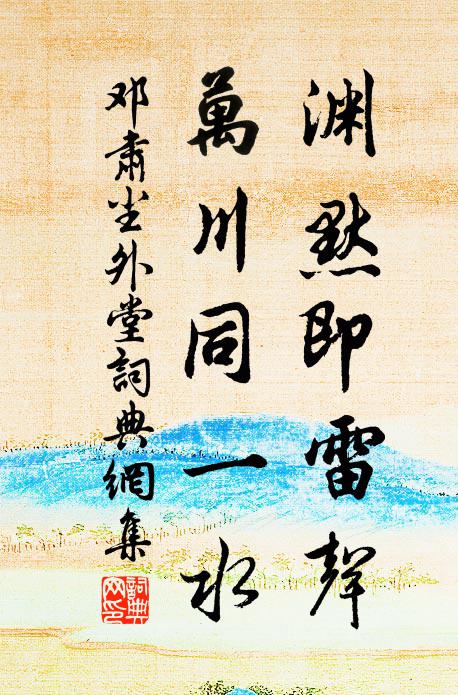 渊默即雷聲
萬川同一水
邓肅尘外堂詞典網集